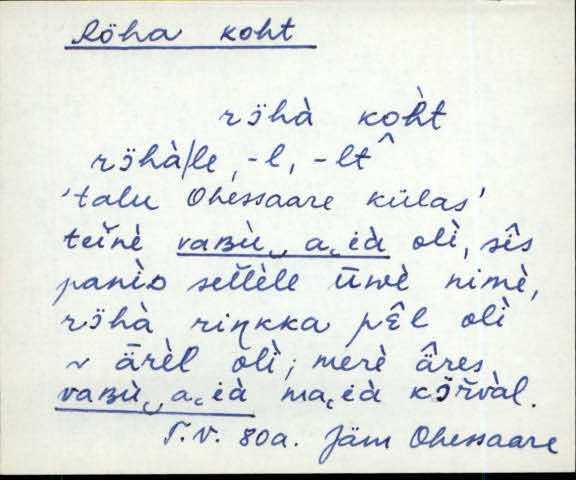 Röha koht
rɔ̈hà kòh̀t
rɔ̈hà/le, -l, -lt^
'talu Ohessaare külas'
teĭnè vaʙù‿a˛ià olì, sês
panìᴅ seĭlèle ūwè nimè,
rɔ̈hà riŋkka pɛ̂l olì
~ ārèl òlì; merè âres
vaʙù‿a˛ià ma˛ià kɔ̈r̆vàl.
T.V. 80a. Jäm Ohessaare